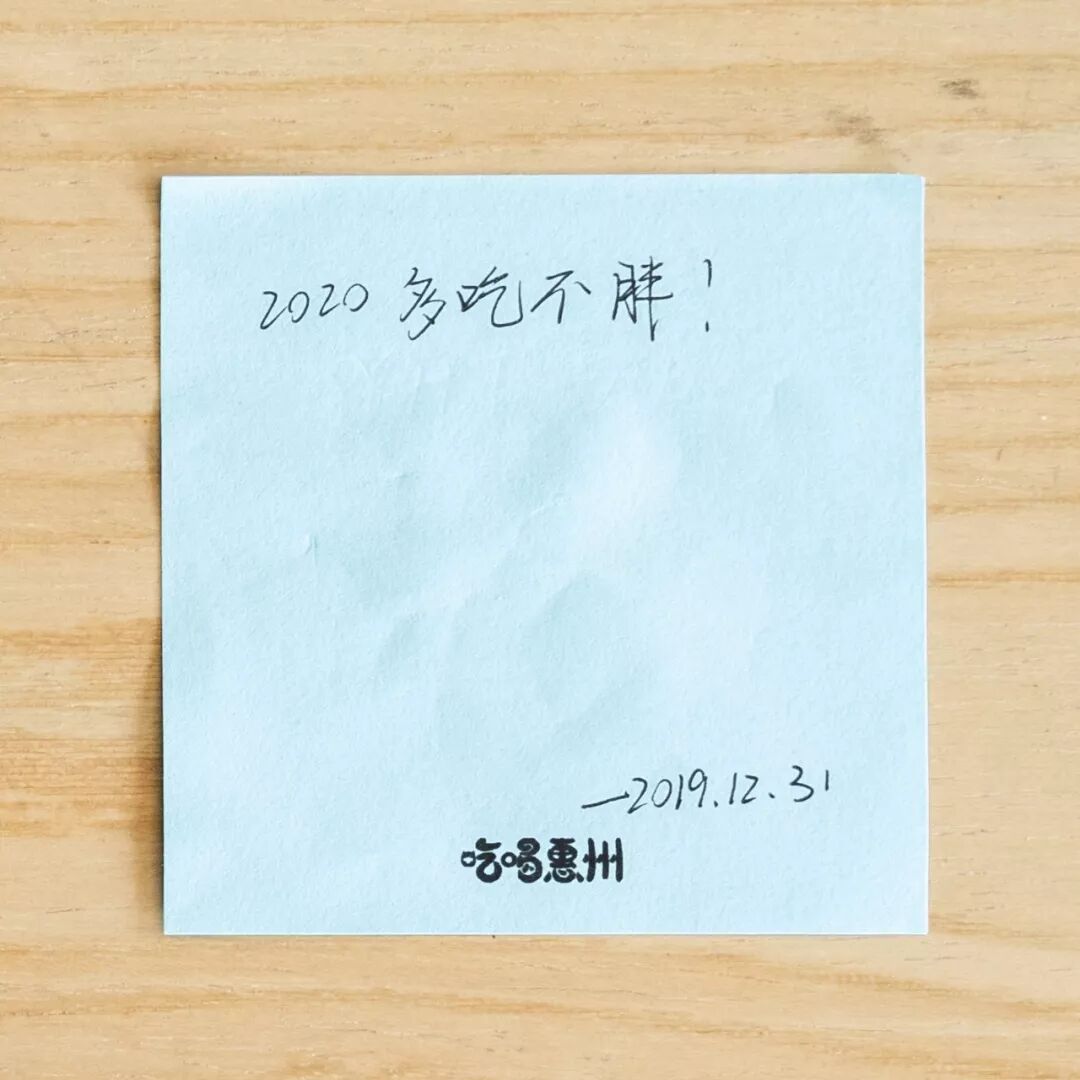 2020 多吃不胖！
—2019.12.31
吃喝惠州